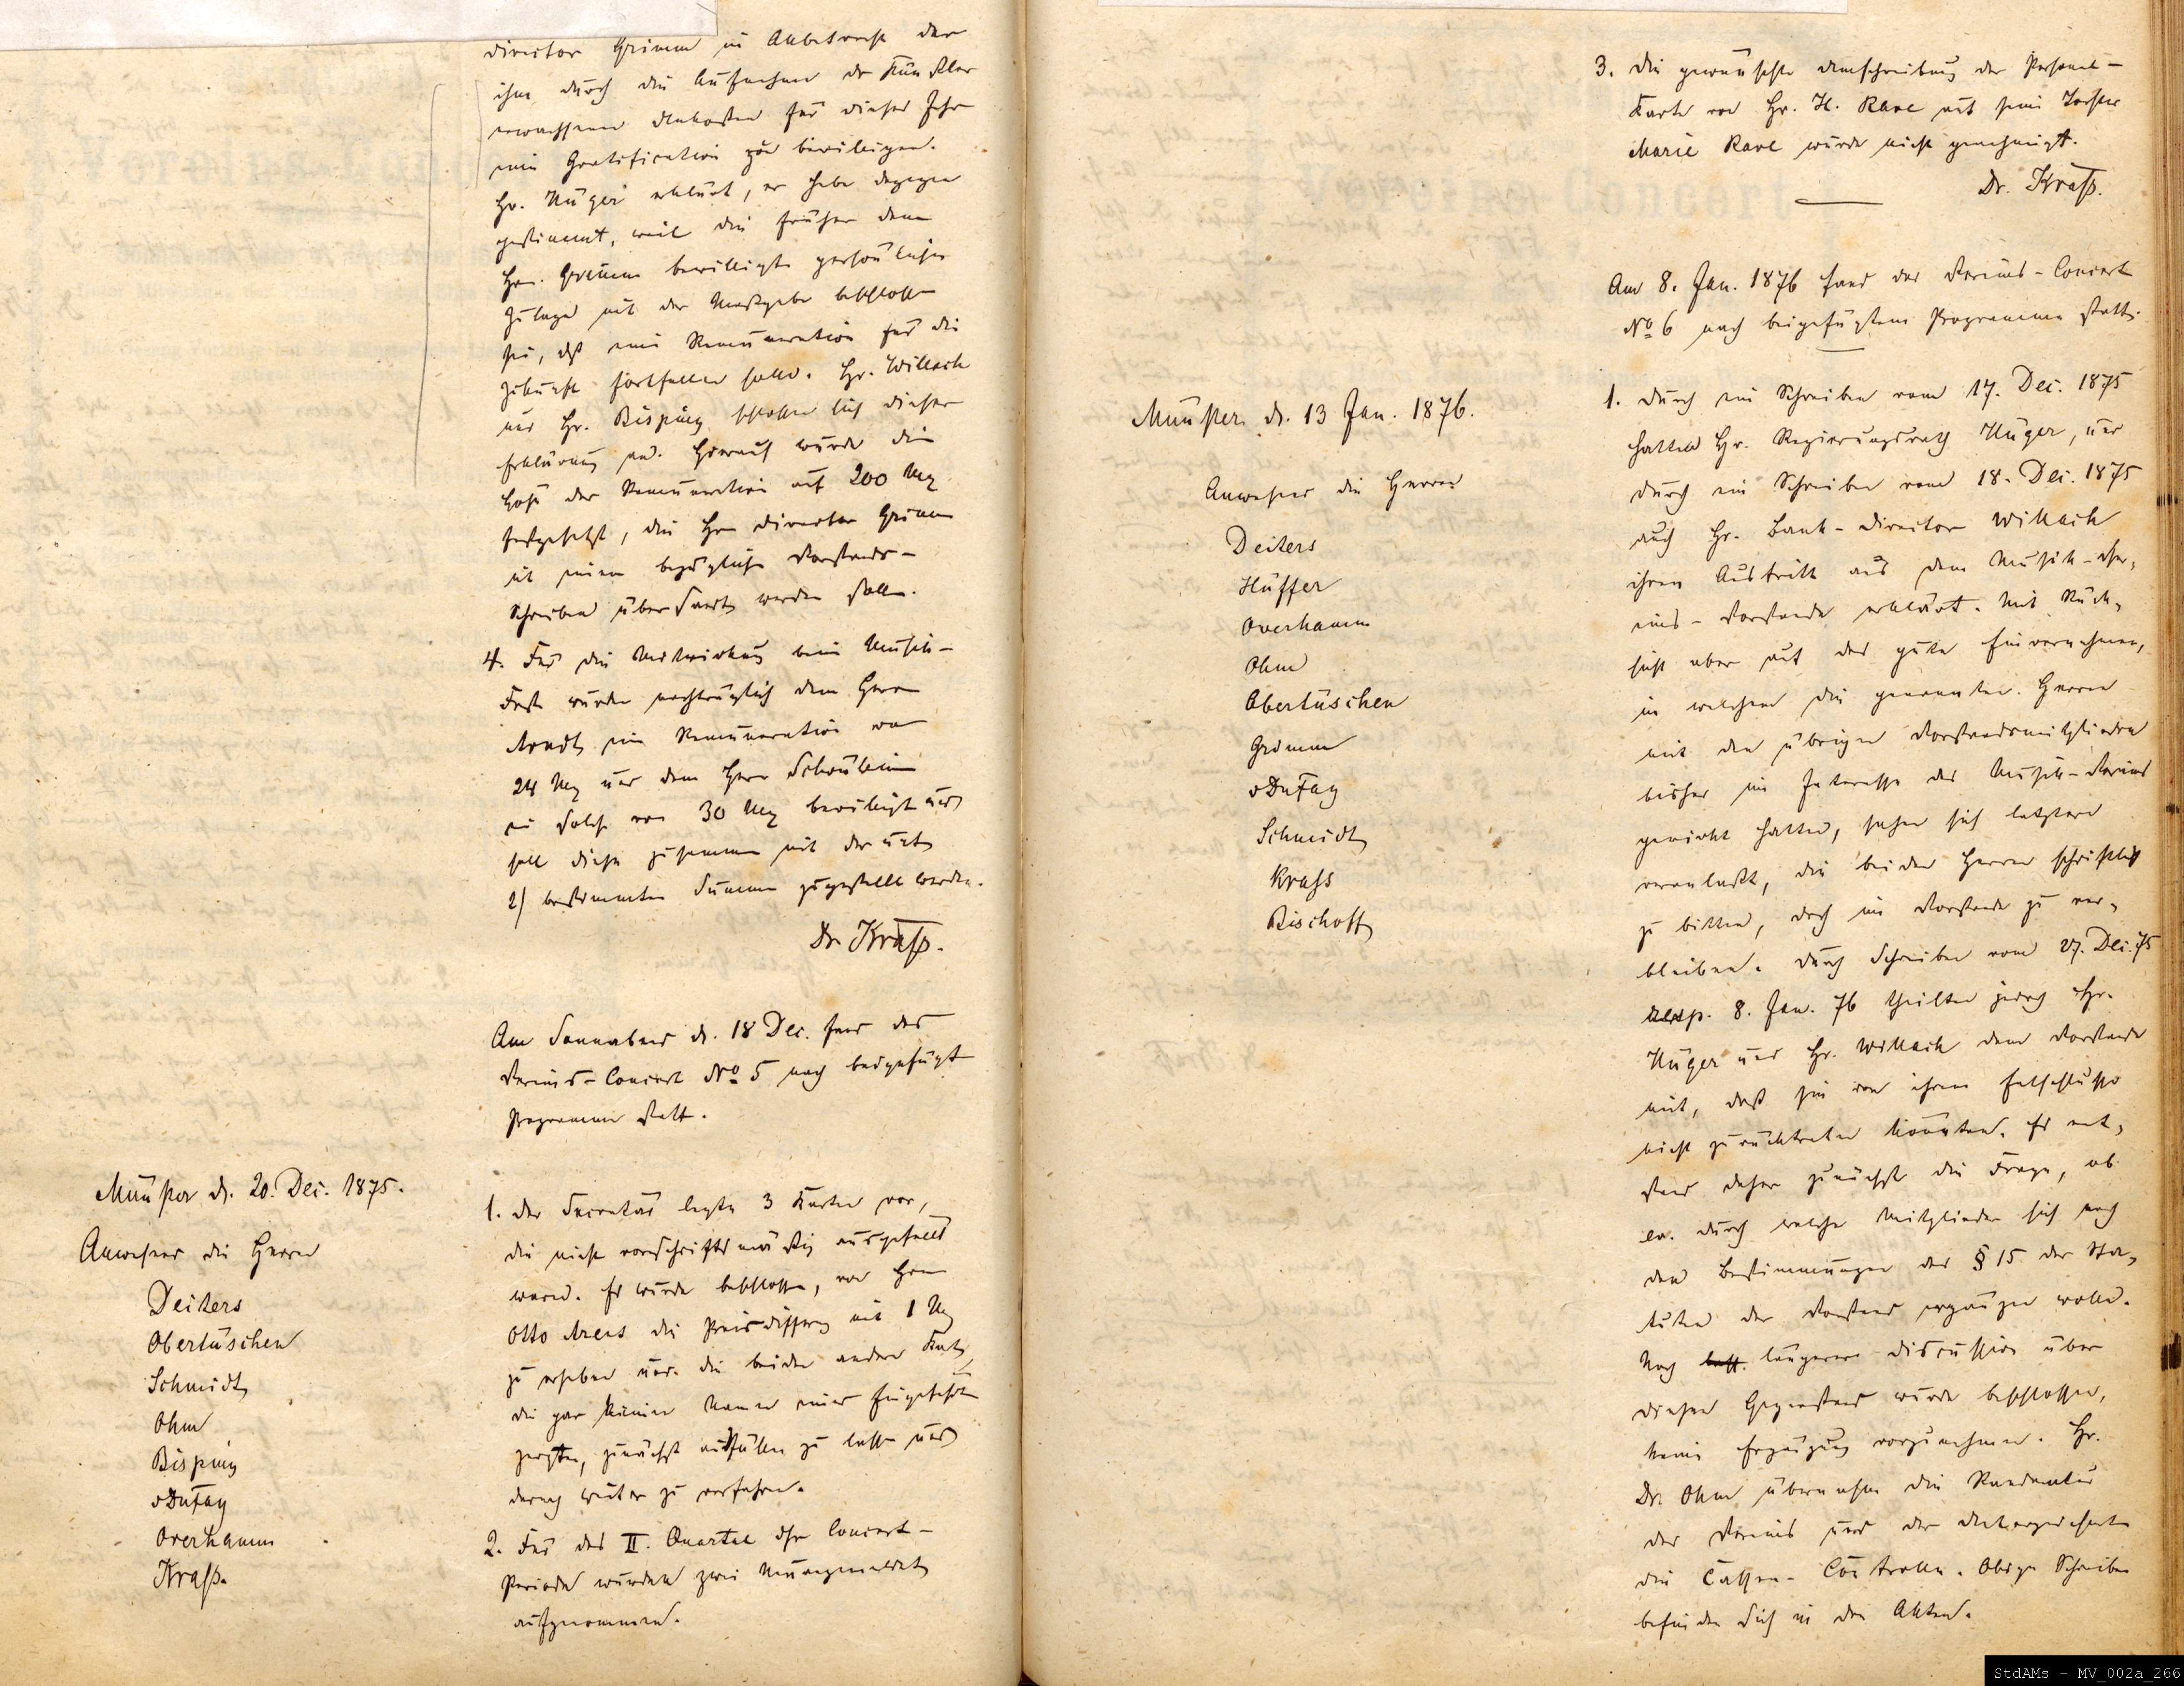 director Grimm in Anbetracht der
ihm durch die Aufnahme der Künstler
erwachsenen Unkosten für dieses Jahr
eine Gratification zu bewilligen.
Hr. Hüger erklärt, er habe dagegen
gestimmt, weil die früher dem
Hrn. Grimm bewilligte persönliche
Zulage mit der Maßgabe beschlossen
sei, daß eine Remuneration für die
Zukunft fortfallen solle. Hr. Willach
und Hr. Bisping schlossen sich dieser
Erklärung an. Hierauf wurde die
Höhe der Remuneration auf 200 Mrg
festgesetzt, die Hrn Director Grimm
mit einem bezüglichen Vorstands-
Schreiben übersandt werden sollen.
4. Für die Mitwirkung beim Musik-
Feste wurden nachträglich dem Herrn
Arndt eine Remuneration von
24 Mrg und dem Herrn Schäublein
eine solche von 30 Mrg bewilligt und
soll diese zusammen mit der unter
2) bestimmten Summe zugestellt werden.
Dr. Kraß.
Am Sonnabend d. 18 Dec. fand das
Vereins-Concert No 5 nach beigefügtem
Programm statt.
Münster d. 20. Dec. 1875.
Anwesend die Herren
Deiters
Obertüschen
Schmidt
Ohm
Bisping
vDuFay
Overhamm
Kraß.
1. Der Secretär legte 3 Karten vor,
die nicht vorschriftsmäßig ausgefüllt
waren. Es wurde beschlossen, von Hrn
Otto Arens die Preisdifferenz mit 1 Mrg
zu erheben und die beiden andern Karten,
die gar keinen Namen eines Eingeführten
zeigten, zunächst ausfüllen zu lassen und
darnach weiter zu verfahren.
2. Für das II. Quartal der Concert-
Periode wurden zwei Neuangemeldete
aufgenommen.
3. Die gewünschte Umschreibung der Personal-
Karte von Hr. H. Rave auf seine Tochter
Marie Rave wurde nicht genehmigt.
Dr. Kraß.
Am 8. Jan. 1876 fand das Vereins-Concert
No 6 nach beigefügtem Programme statt.
Münster d. 13 Jan. 1876.
Anwesend die Herren
Deiters
Hüffer
Overhamm
Ohm
Obertüschen
Grimm
vDuFay
Schmidt
Krass
Bischoff
1. Durch ein Schreiben vom 17. Dec. 1875
hatten Hr. Regierungsrath Hüger, und
durch ein Schreiben vom 18. Dec. 1875
auch Hr. Bank-Director Willach
ihren Austritt aus dem Musik-Ver-
eins-Vorstande erklärt. Mit Rück-
sicht aber auf das gute Einvernehmen,
in welchem die genannten Herren
mit den übrigen Vorstandsmitgliedern
bisher im Interesse des Musik-Vereins
gewirkt hatten, sahen sich letztere
veranlaßt, die beiden Herren schriftlich
zu bitten, doch im Vorstande zu ver-
bleiben. Durch Schreiben vom 27. Dec. 75
resp. 8. Jan. 76 theilten jedoch Hr.
Hüger und Hr. Willach dem Vorstande
mit, daß sie von ihrem Entschlusse
nicht zurücktreten könnten. Es ent-
stand daher zunächst die Frage, ob
ev. durch welche Mitglieder sich nach
den Bestimmungen des § 15 der Sta-
tuten der Vorstand ergänzen wolle.
Nach längerer Discussion über
diesen Gegenstand wurde beschlossen,
keine Ergänzung vorzunehmen. Hr.
Dr. Ohm übernahm die Rendantur
des Vereins und der Unterzeichnete
die Cassen-Controlle. Obige Schreiben
befinden sich in den Akten.
StdAMs - MV_002a_266